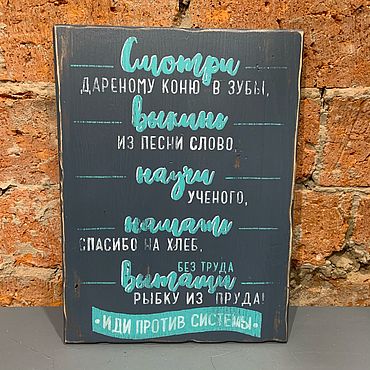 Смотри
ДАРЕНОМУ КОНЮ В ЗУБЫ,
выкинь
ИЗ ПЕСНИ СЛОВО,
научи
УЧЕНОГО,
намажь
СПАСИБО НА ХЛЕБ,
БЕЗ ТРУДА
вытащи
РЫБКУ ИЗ ПРУДА!
• ИДИ ПРОТИВ СИСТЕМЫ •